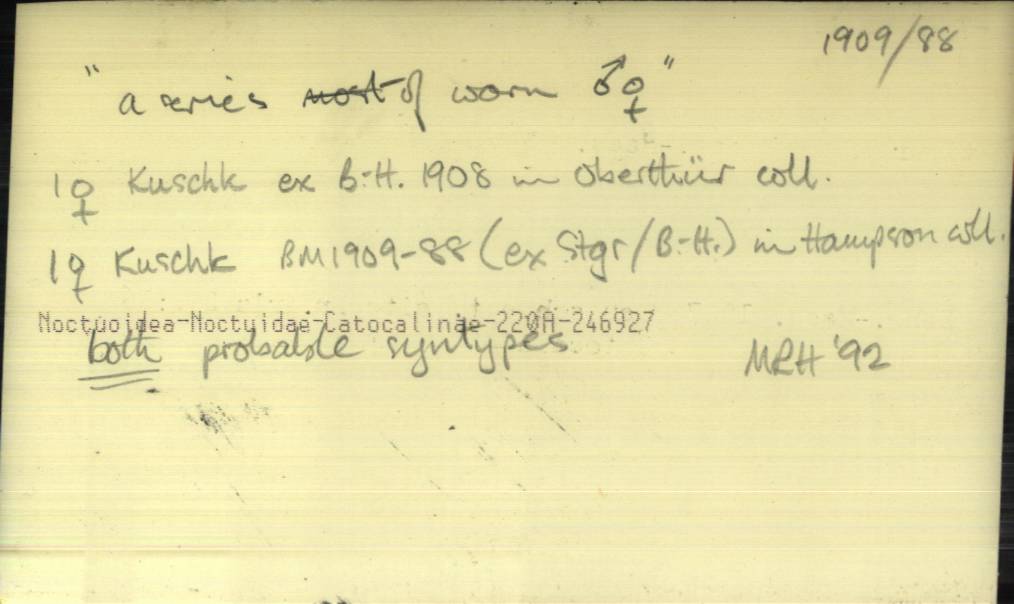 1909/88
"a series most of worn ♂♀"
1♀ Kuschk ex B.-H. 1908 in Oberthür coll.
1♀ Kuschk BM1909-88 (ex Stgr/B.-H.) in Hampson coll.
Noctuoidea-Noctuidae-Catocalinae-220A-246927
both probable syntypes
MRH '92